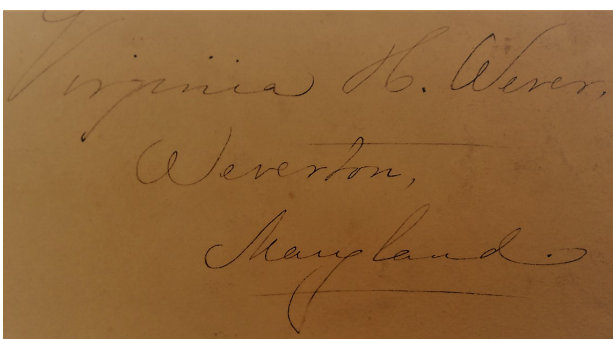 Virginia H. Wever,
Weverton,
Maryland.